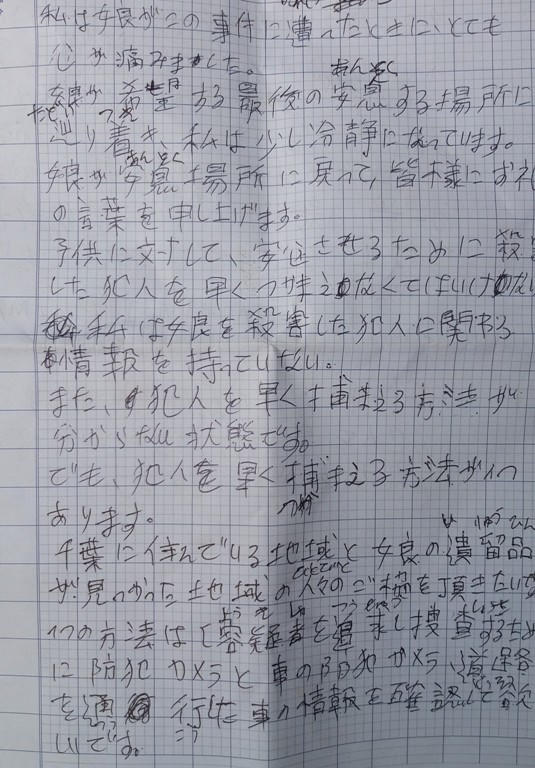 私は娘がこの事件に遭ったときに、とても
心が痛みました。
あんそく
娘が希望する最後の安息する場所に
たど つ
辿り着き、私は少し冷静になっています。
あんそく
娘が安息場所に戻って、皆様にお礼
の言葉を申し上げます。
子供に対して、安心させるために殺害
した犯人を早くつかまえなくてはいけない
私は娘を殺害した犯人に関する
情報を持っていない。
また、犯人を早く捕まえる方法が
分からない状態です。
でも、犯人を早く捕まえる方法が1つ
つか
あります。
い りゅう ひん
千葉に住んでいる地域と娘の遺留品
が見つかった地域の人々のご協力を頂きたいです
よう ぎ しゃ つい せき
1つの方法は[容疑者を追来し捜査するため
に防犯カメラと車の防犯カメラ、道路
を通行した車の情報を確認して欲
つう こう
いです。